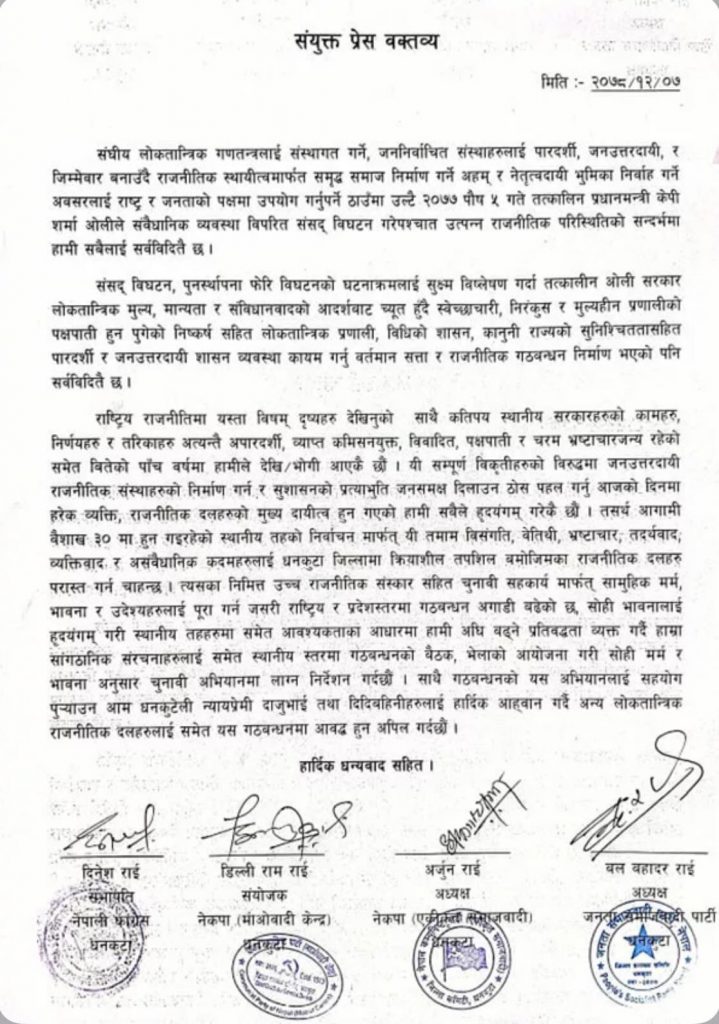 संयुक्त प्रेस वक्तव्य
मिति :- २०७८/१२/०७
संघीय लोकतान्त्रिक गणतन्त्रलाई संस्थागत गर्ने, जननिर्वाचित संस्थाहरुलाई पारदर्शी, जनउत्तरदायी, र
जिम्मेवार बनाउँदै राजनीतिक स्थायीत्वमार्फत समृद्ध समाज निर्माण गर्ने अहम् र नेतृत्वदायी भुमिका निर्वाह गर्ने
अवसरलाई राष्ट्र र जनताको पक्षमा उपयोग गर्नुपर्ने ठाउँमा उल्टै २०७७ पौष ५ गते तत्कालिन प्रधानमन्त्री केपी
शर्मा ओलीले संवैधानिक व्यवस्था विपरित संसद् विघटन गरेपश्चात उत्पन्न राजनीतिक परिस्थितिको सन्दर्भमा
हामी सबैलाई सर्वविदितै छ ।
संसद् विघटन, पुनर्स्थापना फेरि विघटनको घटनाक्रमलाई सुक्ष्म विष्लेषण गर्दा तत्कालीन ओली सरकार
लोकतान्त्रिक मुल्य, मान्यता र संविधानवादको आदर्शबाट च्यूत हुँदै स्वेच्छाचारी, निरंकुस र मुल्यहीन प्रणालीको
पक्षपाती हुन पुगेको निष्कर्ष सहित लोकतान्त्रिक प्रणाली, विधिको शासन, कानुनी राज्यको सुनिश्चिततासहित
पारदर्शी र जनउत्तरदायी शासन व्यवस्था कायम गर्नु वर्तमान सत्ता र राजनीतिक गठबन्धन निर्माण भएको पनि
सर्वविदितै छ ।
राष्ट्रिय राजनीतिमा यस्ता विषम् दृष्यहरु देखिनुको साथै कतिपय स्थानीय सरकारहरुको कामहरु,
निर्णयहरु र तरिकाहरु अत्यन्तै अपारदर्शी, व्याप्त कमिसनयुक्त, विवादित, पक्षपाती र चरम भ्रष्टाचारजन्य रहेको
समेत वितेको पाँच वर्षमा हामीले देखि/भोगी आएकै छौं । यी सम्पूर्ण विकृतीहरुको विरुद्धमा जनउत्तरदायी
राजनीतिक संस्थाहरुको निर्माण गर्न र सुशासनको प्रत्याभुति जनसमक्ष दिलाउन ठोस पहल गर्नु आजको दिनमा
हरेक व्यक्ति, राजनीतिक दलहरुको मुख्य दायीत्व हुन गएको हामी सबैले हृदयंगम् गरेकै छौं । तसर्थ आगामी
वैशाख ३० मा हुन गइरहेको स्थानीय तहको निर्वाचन मार्फत् यी तमाम विसंगति, वेतिथी, भ्रष्टाचार, तदर्थवाद,
व्यक्तिवाद र असंवैधानिक कदमहरुलाई धनकुटा जिल्लामा क्रियाशील तपशिल बमोजिमका राजनीतिक दलहरु
परास्त गर्न चाहन्छ । त्यसका निमित्त उच्च राजनीतिक संस्कार सहित चुनावी सहकार्य मार्फत् सामुहिक मर्म,
भावना र उदेश्यहरुलाई पूरा गर्न जसरी राष्ट्रिय र प्रदेशस्तरमा गठबन्धन अगाडी बढेको छ, सोही भावनालाई
हृदयंगम् गरी स्थानीय तहहरुमा समेत आवश्यकताका आधारमा हामी अघि बढ्ने प्रतिवद्धता व्यक्त गर्दै हाम्रा
सांगठानिक संरचनाहरुलाई समेत स्थानीय स्तरमा गठबन्धनको बैठक, भेलाको आयोजना गरी सोही मर्म र
भावना अनुसार चुनावी अभियानमा लाग्न निर्देशन गर्दछौं । साथै गठबन्धनको यस अभियानलाई सहयोग
पुर्‍याउन आम धनकुटेली न्यायप्रेमी दाजुभाई तथा दिदिबहिनीहरुलाई हार्दिक आह्वान गर्दै अन्य लोकतान्त्रिक
राजनीतिक दलहरुलाई समेत यस गठबन्धनमा आवद्ध हुन अपिल गर्दछौं ।
हार्दिक धन्यवाद सहित ।
दिनेश राई डिल्ली राम राई अर्जुन राई बल बहादर राई
सभापति संयोजक अध्यक्ष अध्यक्ष
नेपाली कांग्रेस नेकपा (माओवादी केन्द्र) नेकपा (एकीकृत समाजवादी) जनता समाजवादी पार्टी
धनकुटा धनकुटा धनकुटा धनकुटा